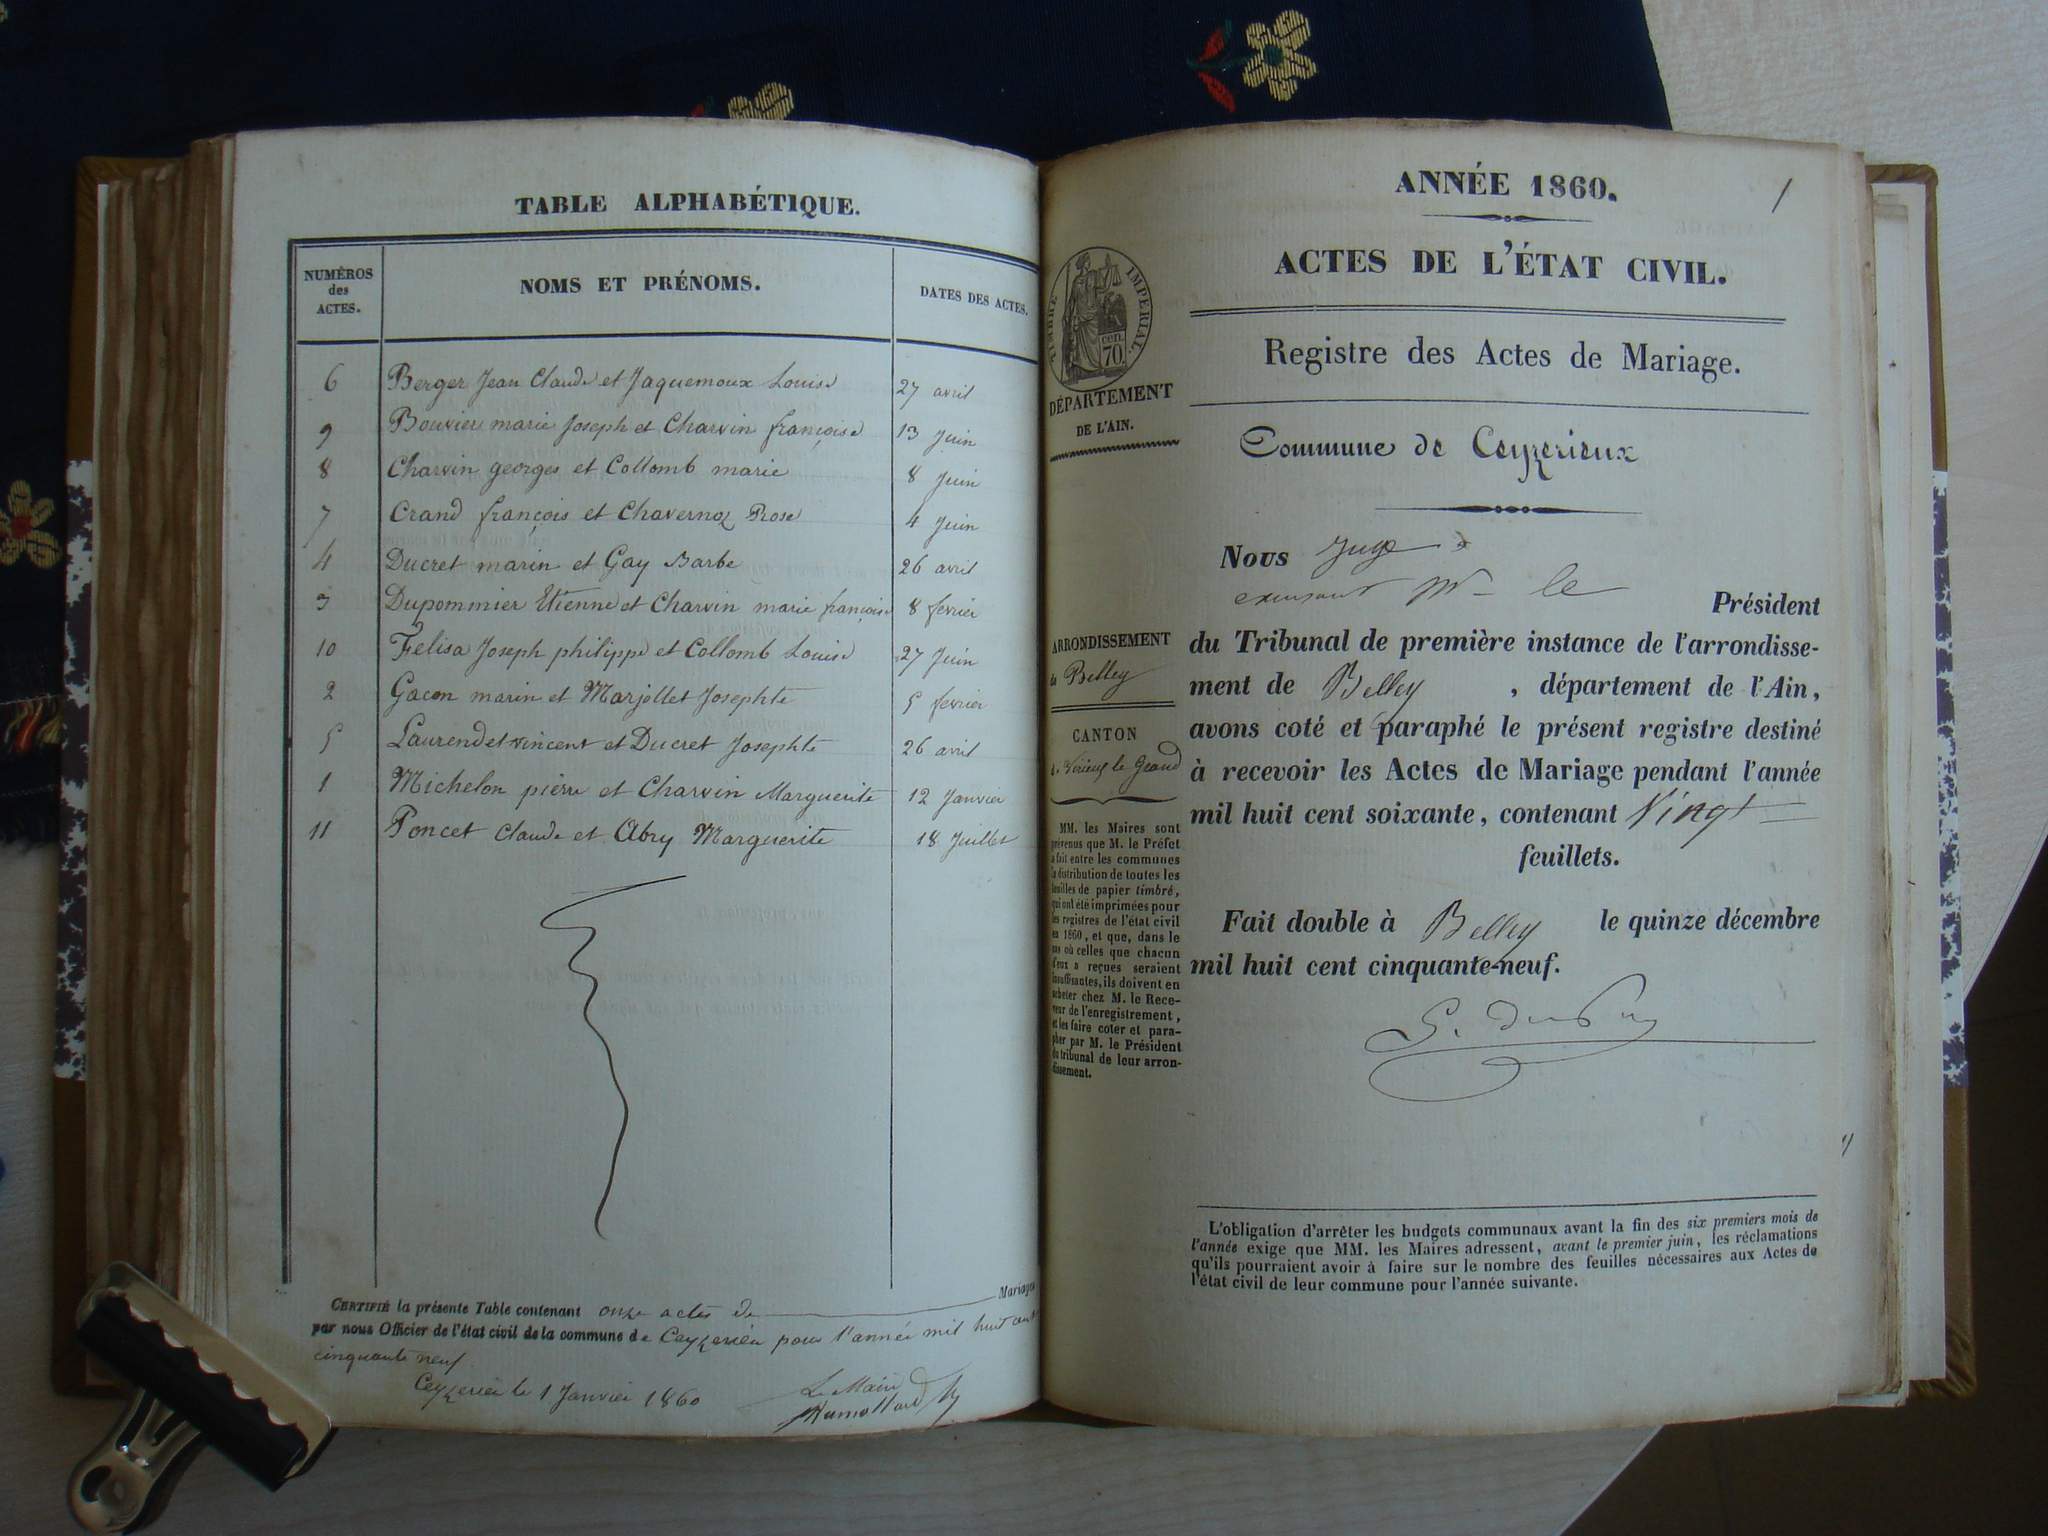 TABLE ALPHABÉTIQUE.
NUMÉROS des ACTES. NOMS ET PRÉNOMS. DATES DES ACTES.
6 Berger Jean Claude et Jaquemoux Louise 27 avril
9 Bouvier marie Joseph et Charvin françoise 13 Juin
8 Charvin georges et Collomb marie 8 Juin
7 Crand françois et Chavernoz Rose 4 Juin
4 Ducret marin et Gay Barbe 26 avril
3 Dupommier Etienne et Charvin marie françoise 8 fevrier
10 Felisa Joseph philippe et Collomb Louise 27 Juin
2 Gacon marin et Marjollet Josephte 5 fevrier
5 Laurendet vincent et Ducret Josephte 26 avril
1 Michelon pierre et Charvin Marguerite 12 Janvier
11 Poncet Claude et Abry Marguerite 18 Juillet
CERTIFIÉ la présente Table contenant onze actes de Mariages
par nous Officier de l'état civil de la commune de Ceyzerieu pour l'année mil huit cent
cinquante neuf
Ceyzerieu le 1 Janvier 1860
Le Maire
ANNÉE 1860.
1
ACTES DE L'ÉTAT CIVIL.
Registre des Actes de Mariage.
TIMBRE IMPERIAL.
70. cen.
DÉPARTEMENT
DE L'AIN.
Commune de Ceyzerieux
Nous Juge
Mr le Président
du Tribunal de première instance de l'arrondisse-
ment de Belley, département de l'Ain,
avons coté et paraphé le présent registre destiné
à recevoir les Actes de Mariage pendant l'année
mil huit cent soixante, contenant Vingt
feuillets.
Fait double à Belley le quinze décembre
mil huit cent cinquante-neuf.
ARRONDISSEMENT
de Belley
CANTON
de Virieu le Grand
MM. les Maires sont
prévenus que M. le Préfet
a fait entre les communes
la distribution de toutes les
feuilles de papier timbré,
qui ont été imprimées pour
les registres de l'état civil
en 1860, et que, dans le
cas où celles que chacun
d'eux a reçues seraient
insuffisantes, ils doivent en
acheter chez M. le Rece-
veur de l'enregistrement,
et les faire coter et para-
pher par M. le Président
du tribunal de leur arron-
dissement.
L'obligation d'arrêter les budgets communaux avant la fin des six premiers mois de
l'année exige que MM. les Maires adressent, avant le premier juin, les réclamations
qu'ils pourraient avoir à faire sur le nombre des feuilles nécessaires aux Actes de
l'état civil de leur commune pour l'année suivante.